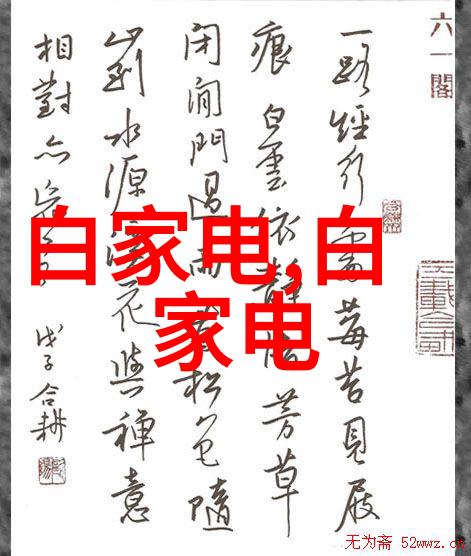 六一閣
一路經行處莓苔見屐
痕白雲依靜渚芳草
閉閒門過雨看松色隨
山到水源溪花與禪意
相對亦忘言
戊子合耕
白家电,白
家电
无为斋 52wwz.cn